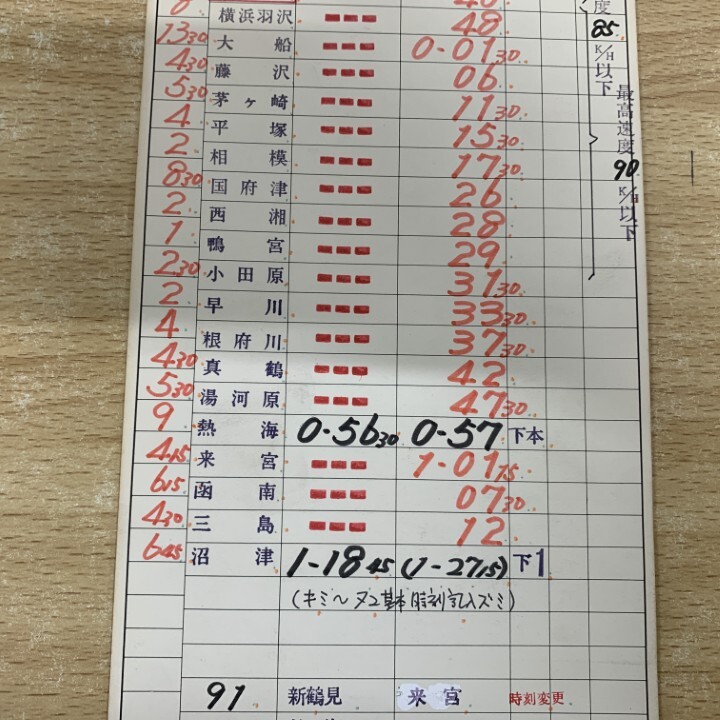 度 85 K/H 以下
8 横浜羽沢 48
13 30 大船 0-01 30
4 30 藤沢 06
5 30 茅ヶ崎 11 30
最高速度 90 K/H 以下
4 平塚 15 30
2 相模 17 30
8 30 国府津 26
2 西湘 28
1 鴨宮 29
2 30 小田原 31 30
2 早川 33 30
4 根府川 37 30
4 30 真鶴 42
5 30 湯河原 47 30
9 熱海 0-56 30 0-57 下本
4 15 来宮 1-01 15
6 15 函南 07 30
4 30 三島 12
6 45 沼津 1-18 45 (1-27 15) 下1
(キミ〜ヌマ基本時刻記入ズミ)
91 新鶴見 来宮 時刻変更